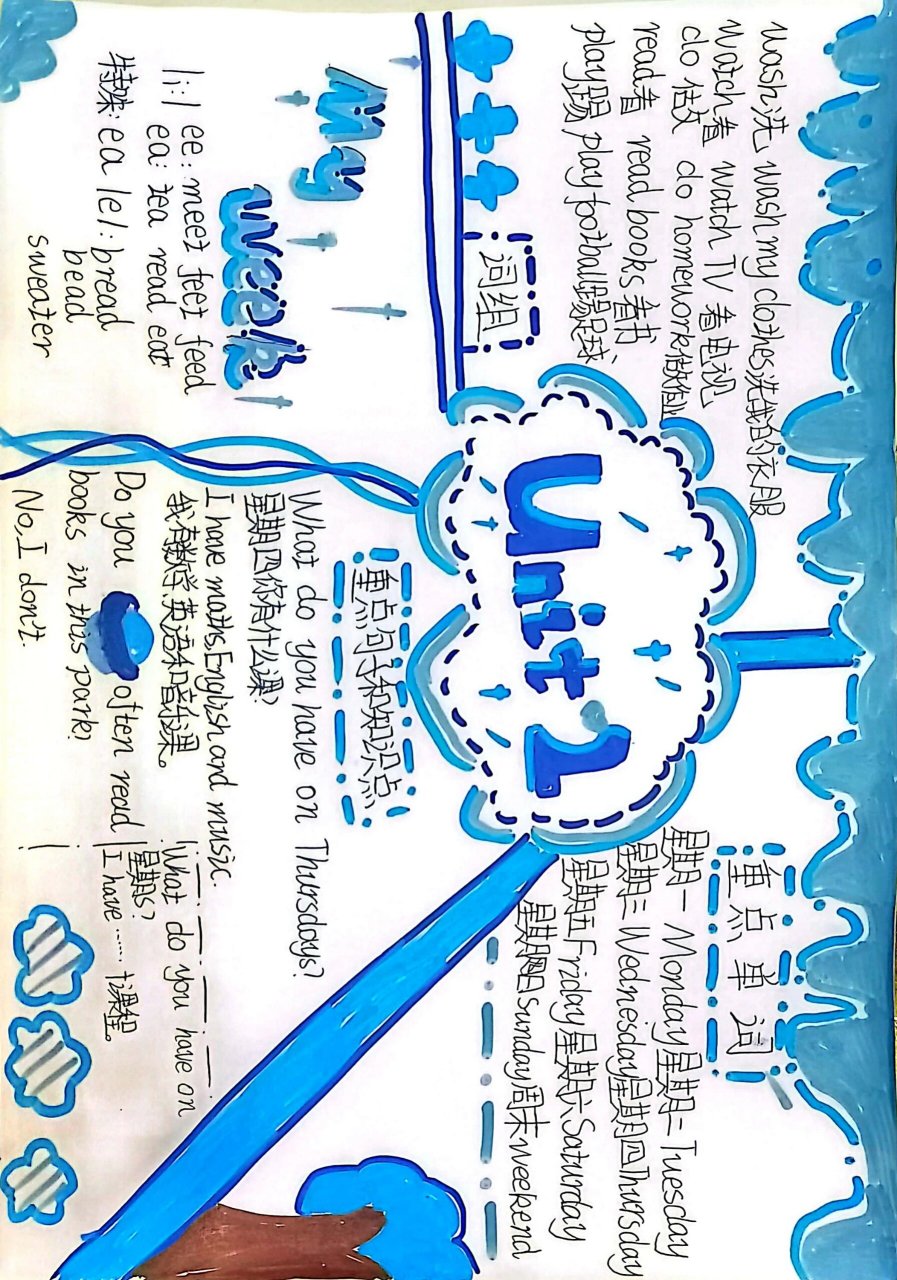 Unit 2
My
week
词组
wash洗 wash my clothes洗我的衣服
watch看 watch TV 看电视
do 做 do homework做作业
read看 read books 看书
play踢 play football踢足球
/i:/ ee: meet feet feed
ea: tea read eat
特殊: ea /e/: bread
bead
sweater
重点单词
星期一 Monday 星期二 Tuesday
星期三 Wednesday 星期四 Thursday
星期五 Friday 星期六 Saturday
星期日 Sunday 周末 weekend
重点句子和知识点
What do you have on Thursdays?
星期四你有什么课?
I have maths, English and music.
我有数学,英语和音乐课。
Do you often read
books in this park?
No, I don't.
What do you have on
星期s?
I have …… +课程。